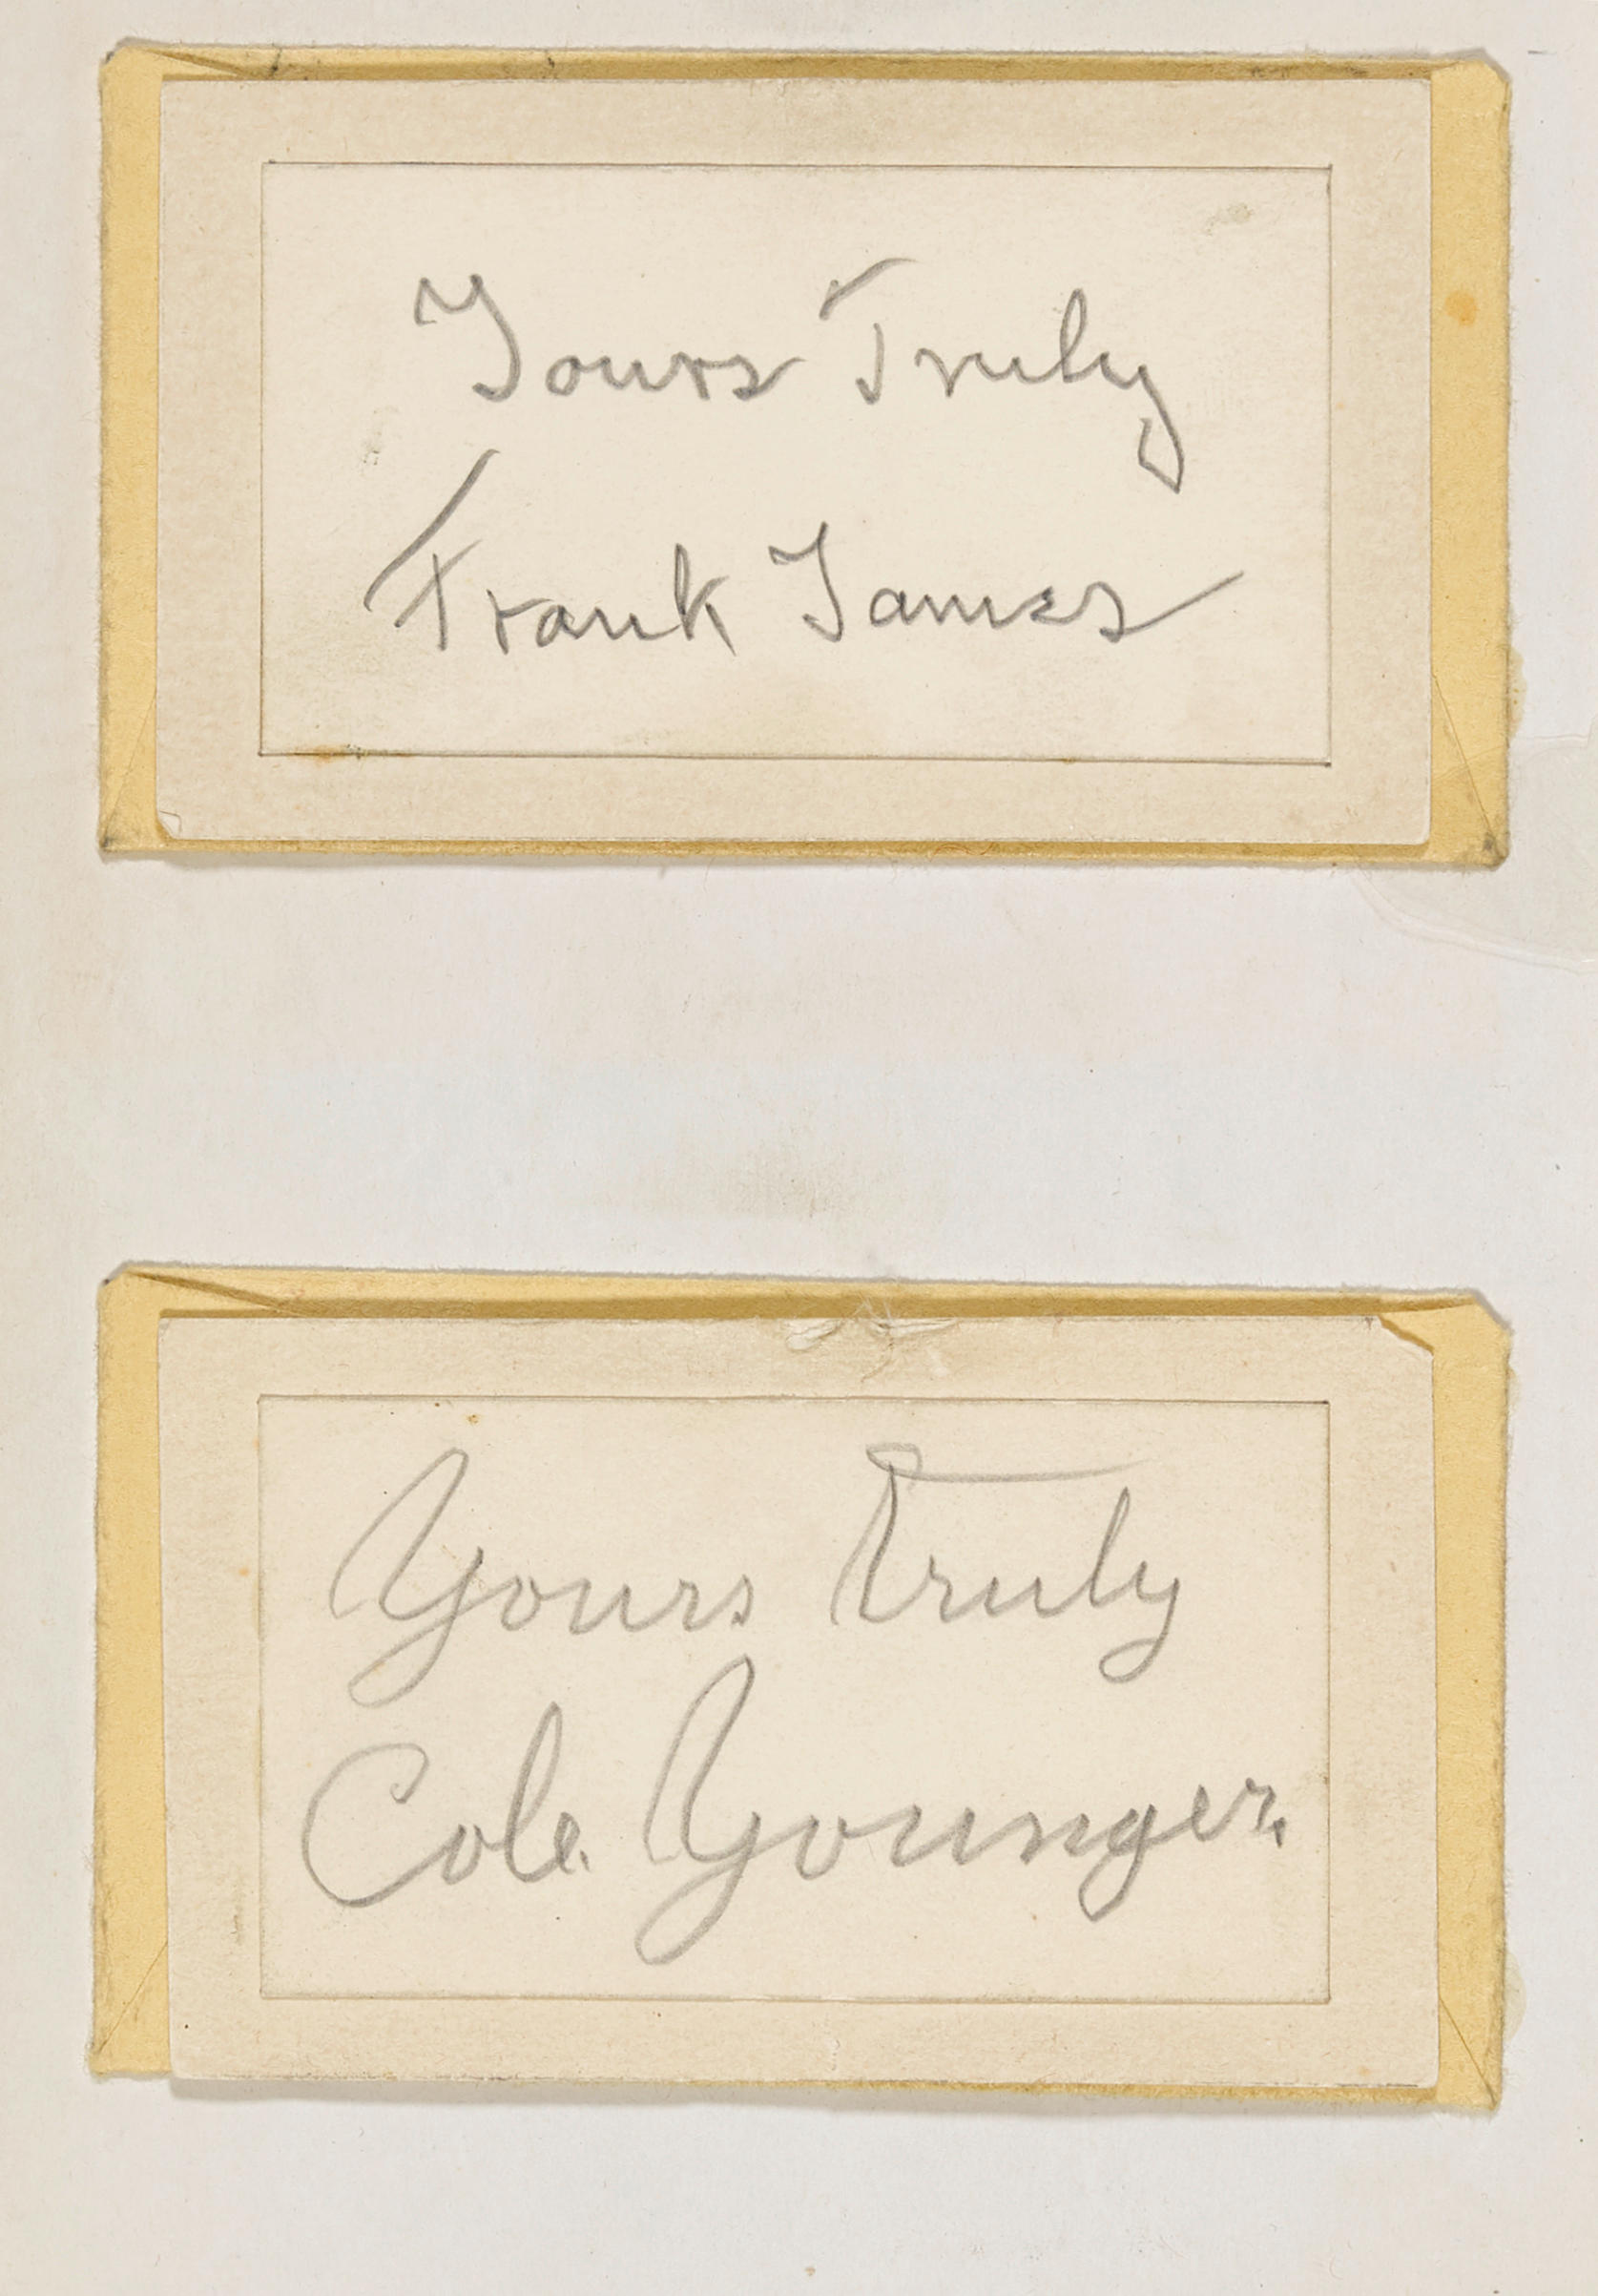 Yours Truly
Frank James
Yours Truly
Cole Younger.